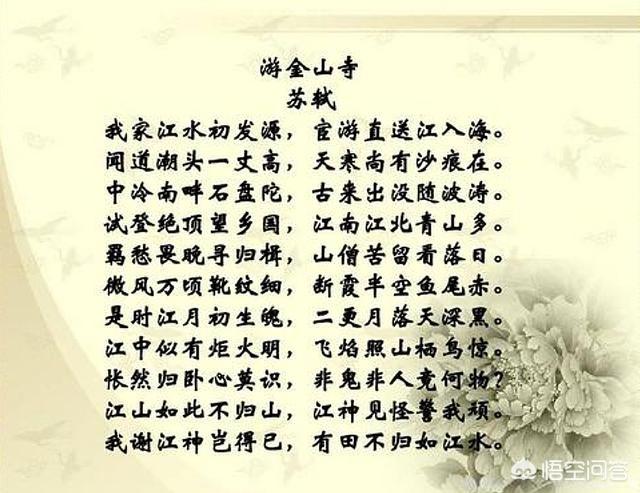 游金山寺
苏轼
我家江水初发源，宦游直送江入海。
闻道潮头一丈高，天寒尚有沙痕在。
中泠南畔石盘陀，古来出没随波涛。
试登绝顶望乡国，江南江北青山多。
羁愁畏晚寻归楫，山僧苦留看落日。
微风万顷靴纹细，断霞半空鱼尾赤。
是时江月初生魄，二更月落天深黑。
江中似有炬火明，飞焰照山栖鸟惊。
怅然归卧心莫识，非鬼非人竟何物？
江山如此不归山，江神见怪警我顽。
我谢江神岂得已，有田不归如江水。
悟空问答